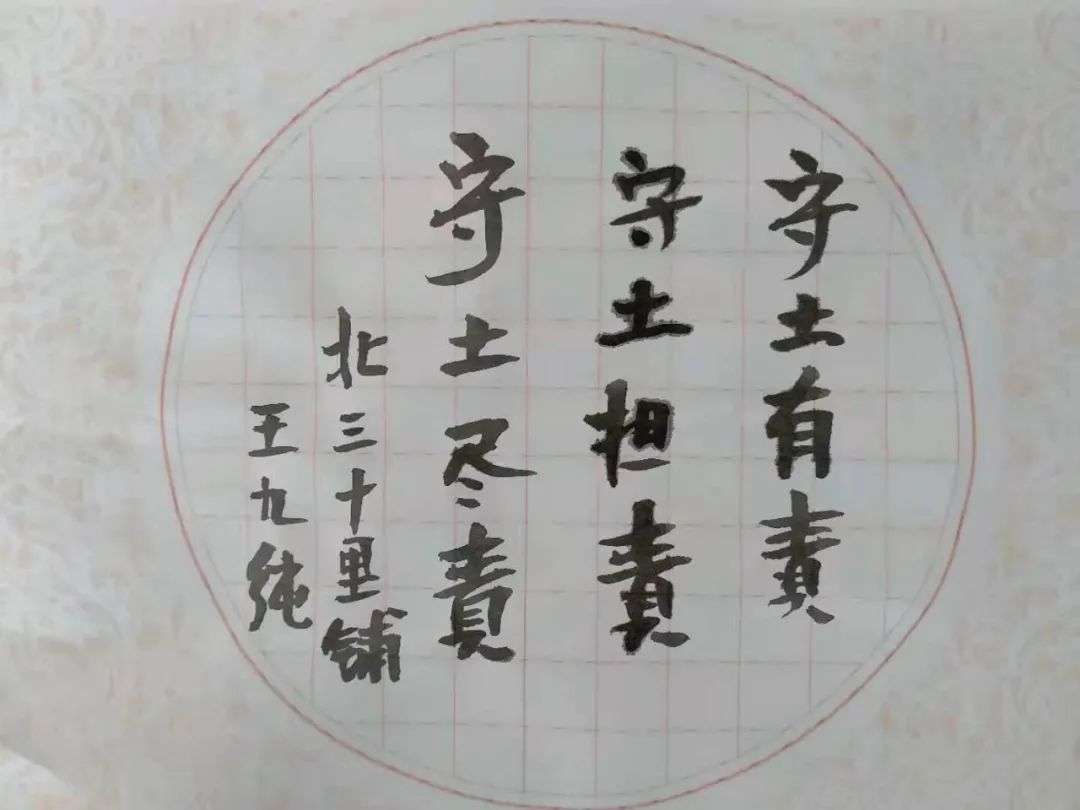 守土有责
守土担责
守土尽责
北三十里铺
王九纯